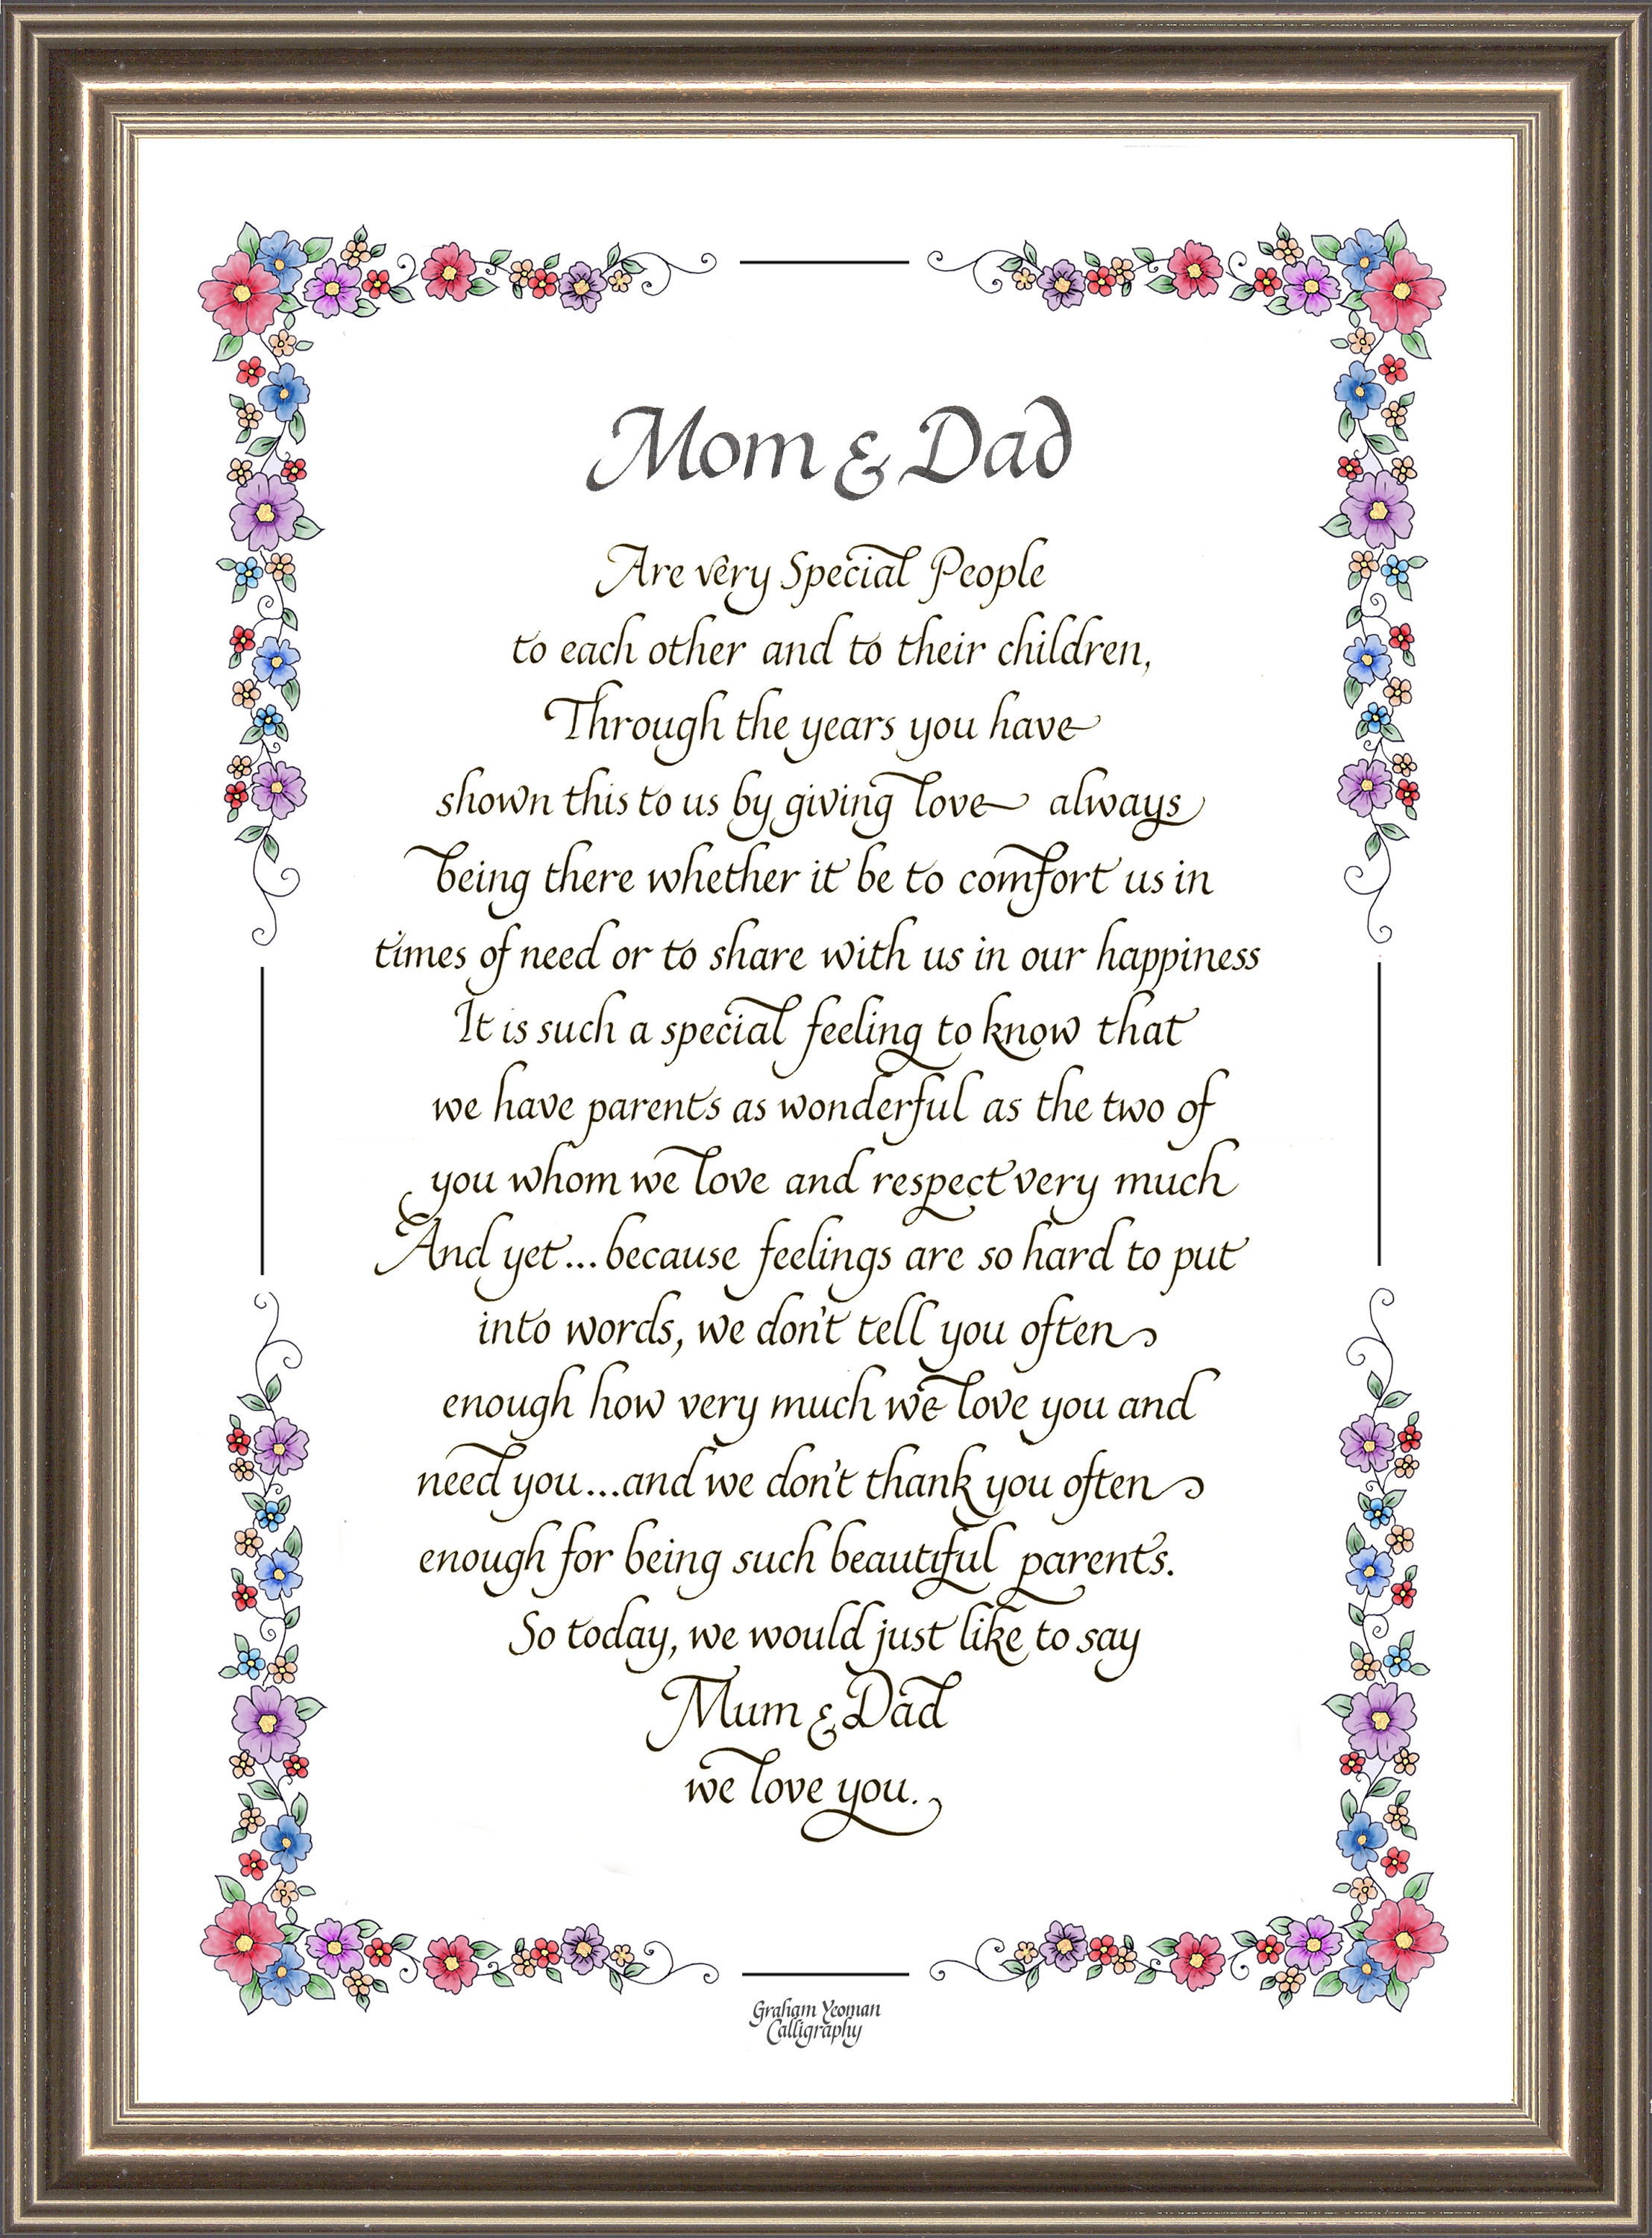 Mom & Dad
Are very Special People
to each other and to their children,
Through the years you have
shown this to us by giving love always
being there whether it be to comfort us in
times of need or to share with us in our happiness
It is such a special feeling to know that
we have parents as wonderful as the two of
you whom we love and respect very much
And yet...because feelings are so hard to put
into words, we don't tell you often
enough how very much we love you and
need you...and we don't thank you often
enough for being such beautiful parents.
So today, we would just like to say
Mum & Dad
we love you.
Graham Yeoman
Calligraphy